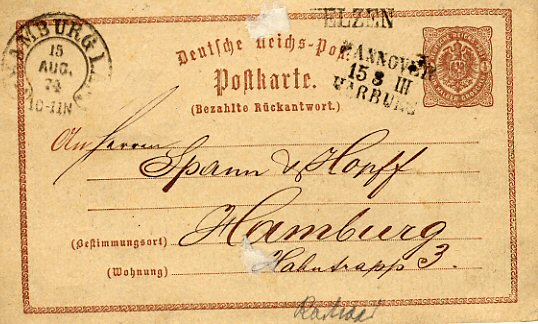 HAMBURG I.
15
AUG.
74
10-11N
ELZEN
HANNOVER
15 8 III
HARBURG
Deutsche Reichs-Post
Postkarte.
(Bezahlte Rückantwort.)
An Herren
Spann & Hopff
Hamburg
(Bestimmungsort)
(Wohnung) Hahntrapp 3.